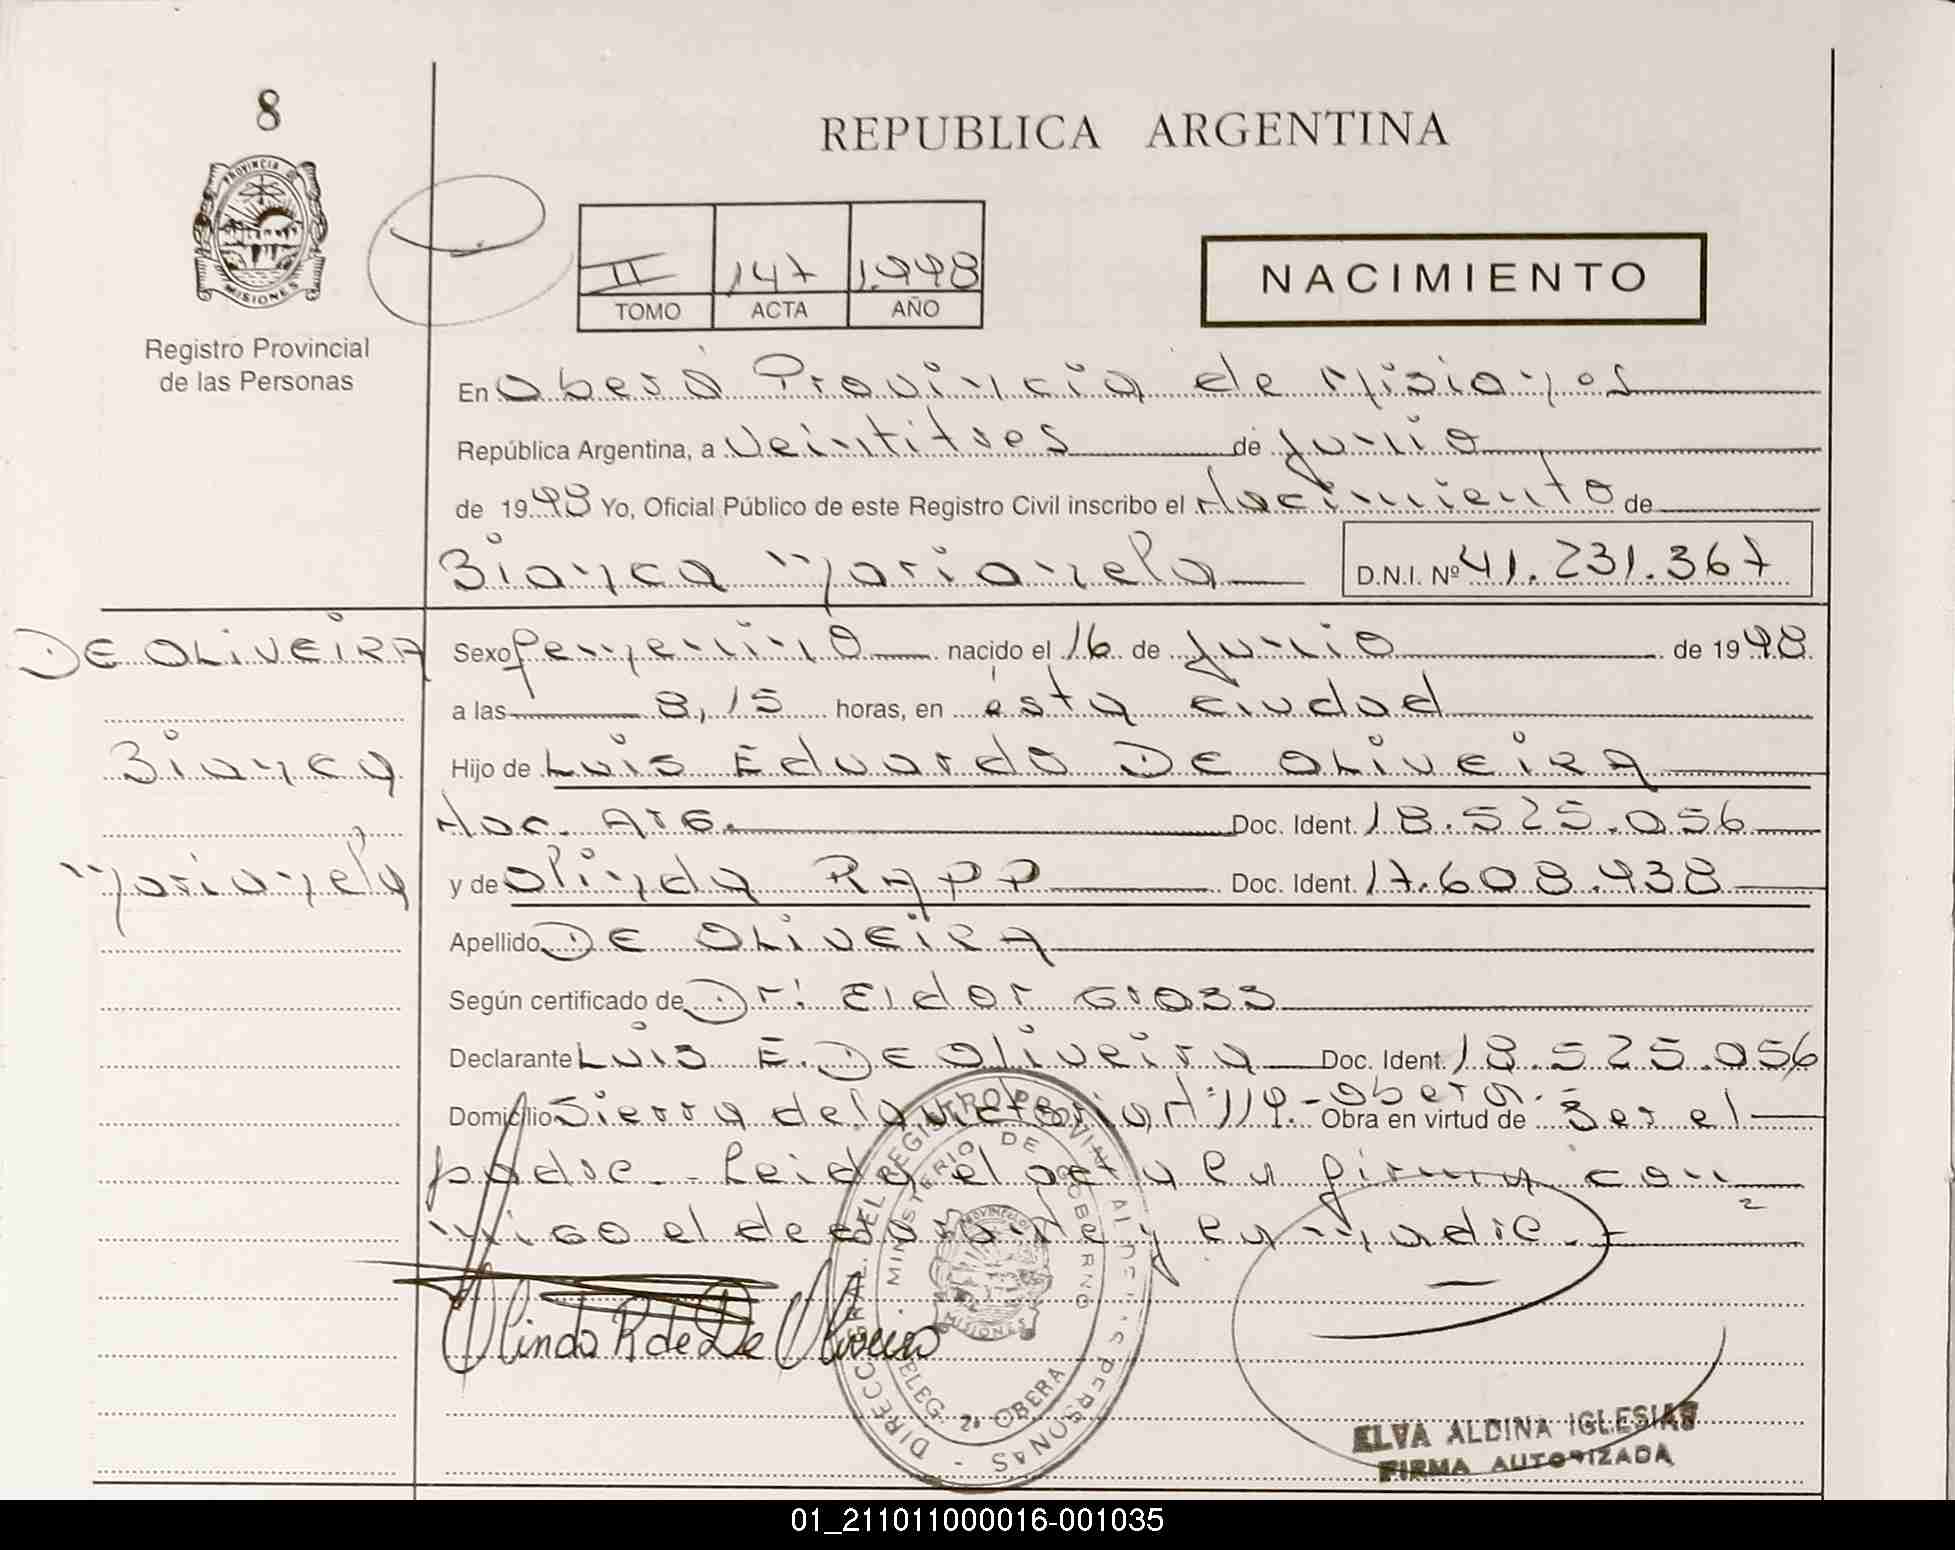 8
REPUBLICA ARGENTINA
PROVINCIA DE
MISIONES
Registro Provincial
de las Personas
II 147 1.998
TOMO ACTA AÑO
NACIMIENTO
En Oberá Provincia de Misiones
República Argentina, a veintitres de junio
de 1998 Yo, Oficial Público de este Registro Civil inscribo el Nacimiento de
Bianca Marianela D.N.I. Nº 41.231.367
DE OLIVEIRA
Bianca
Marianela
Sexo femenino nacido el 16 de junio de 1998
a las 8,15 horas, en ésta ciudad
Hijo de Luis Eduardo DE OLIVEIRA
Nac. Arg. Doc. Ident. 18.525.056
y de Olinda RAPP Doc. Ident. 17.608.938
Apellido DE OLIVEIRA
Según certificado de Dr: Eldor Gross
Declarante Luis E. De Oliveira Doc. Ident. 18.525.056
Domicilio Sierra de la victoria Nº 119.- Oberá. Obra en virtud de Ser el
padre.- Leida el acta la firma con
migo el declarante y la madre.-
Olinda R de De Oliveira
MINISTERIO DE GOBIERNO
PROVINCIA DE
MISIONES
DELEG. 2º OBERA
ELVA ALDINA IGLESIAS
FIRMA AUTORIZADA
01_211011000016-001035